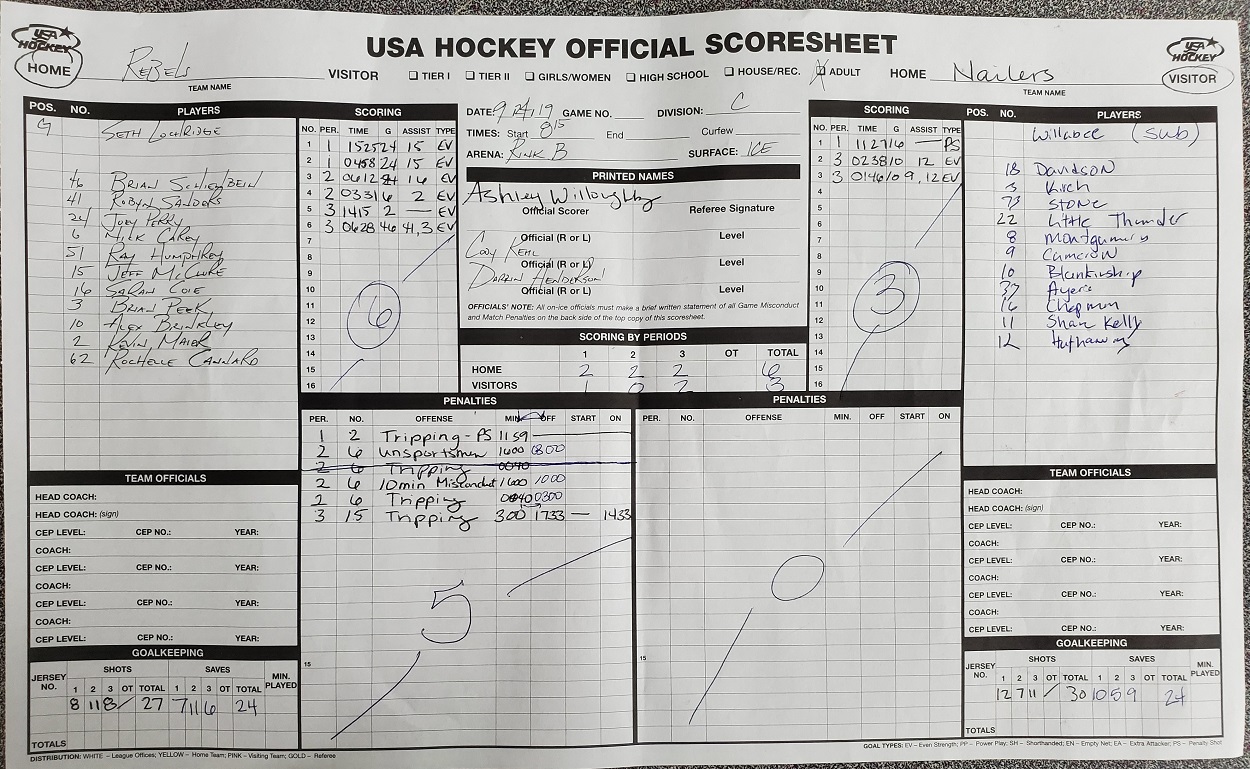 USA HOCKEY OFFICIAL SCORESHEET
USA HOCKEY
HOME
Rebels
TEAM NAME
VISITOR
TIER I TIER II GIRLS/WOMEN HIGH SCHOOL HOUSE/REC. ADULT
HOME
Nailers
TEAM NAME
USA HOCKEY
VISITOR
POS. NO. PLAYERS
G Seth Lochridge
46 Brian Schienbein
41 Robyn Sanders
24 Joey Perry
6 Nick Carey
51 Ray Humphrey
15 Jeff McClure
16 Saran Cole
3 Brian Peek
10 Alex Brinkley
2 Kevin Maier
62 Rochelle Cannard
SCORING
NO. PER. TIME G ASSIST TYPE
1 1 1525 24 15 EV
2 1 0458 24 15 EV
3 2 0612 24 16 EV
4 2 0331 6 2 EV
5 3 1415 2 — EV
6 3 0628 46 41,3 EV
7
8
9
10
11
12
13
14
15
16
6
DATE: 9/24/19 GAME NO. DIVISION: C
TIMES: Start 8:15 End Curfew
ARENA: Rink B SURFACE: ICE
PRINTED NAMES
Ashley Willoughby
Official Scorer Referee Signature
Official (R or L) Level
Cody Kehl
Official (R or L) Level
Darrin Henderson
Official (R or L) Level
OFFICIALS' NOTE: All on-ice officials must make a brief written statement of all Game Misconduct
and Match Penalties on the back side of the top copy of this scoresheet.
SCORING BY PERIODS
1 2 3 OT TOTAL
HOME 2 2 2 6
VISITORS 1 0 2 3
SCORING
NO. PER. TIME G ASSIST TYPE
1 1 1127 16 — PS
2 3 0238 10 12 EV
3 3 0146 10 9,12 EV
4
5
6
7
8
9
10
11
12
13
14
15
16
3
POS. NO. PLAYERS
Willabee (sub)
18 Davidson
3 Kirch
73 Stone
22 Little Thunder
8 Montgomery
9 Cameron
10 Blankinship
37 Ayers
16 Chapman
11 Shan Kelly
12
PENALTIES
PER. NO. OFFENSE MIN. OFF START ON
1 2 Tripping - PS 1159
2 6 Unsportsmen 1600 0800
2 6 Tripping 0040
2 6 10min Misconduct 1600 1000
2 6 Tripping 0040 0300
3 15 Tripping 300 1733 — 1433
5
15
PENALTIES
PER. NO. OFFENSE MIN. OFF START ON
0
15
TEAM OFFICIALS
HEAD COACH:
HEAD COACH: (sign)
CEP LEVEL: CEP NO.: YEAR:
COACH:
CEP LEVEL: CEP NO.: YEAR:
COACH:
CEP LEVEL: CEP NO.: YEAR:
COACH:
CEP LEVEL: CEP NO.: YEAR:
GOALKEEPING
JERSEY NO. SHOTS SAVES MIN. PLAYED
1 2 3 OT TOTAL 1 2 3 OT TOTAL
8 11 8 / 27 7 11 6 24
TOTALS
TEAM OFFICIALS
HEAD COACH:
HEAD COACH: (sign)
CEP LEVEL: CEP NO.: YEAR:
COACH:
CEP LEVEL: CEP NO.: YEAR:
COACH:
CEP LEVEL: CEP NO.: YEAR:
COACH:
CEP LEVEL: CEP NO.: YEAR:
GOALKEEPING
JERSEY NO. SHOTS SAVES MIN. PLAYED
1 2 3 OT TOTAL 1 2 3 OT TOTAL
12 7 11 / 30 10 5 9 24
TOTALS
DISTRIBUTION: WHITE – League Offices; YELLOW – Home Team; PINK – Visiting Team; GOLD – Referee
GOAL TYPES: EV – Even Strength; PP – Power Play; SH – Shorthanded; EN – Empty Net; EA – Extra Attacker; PS – Penalty Shot